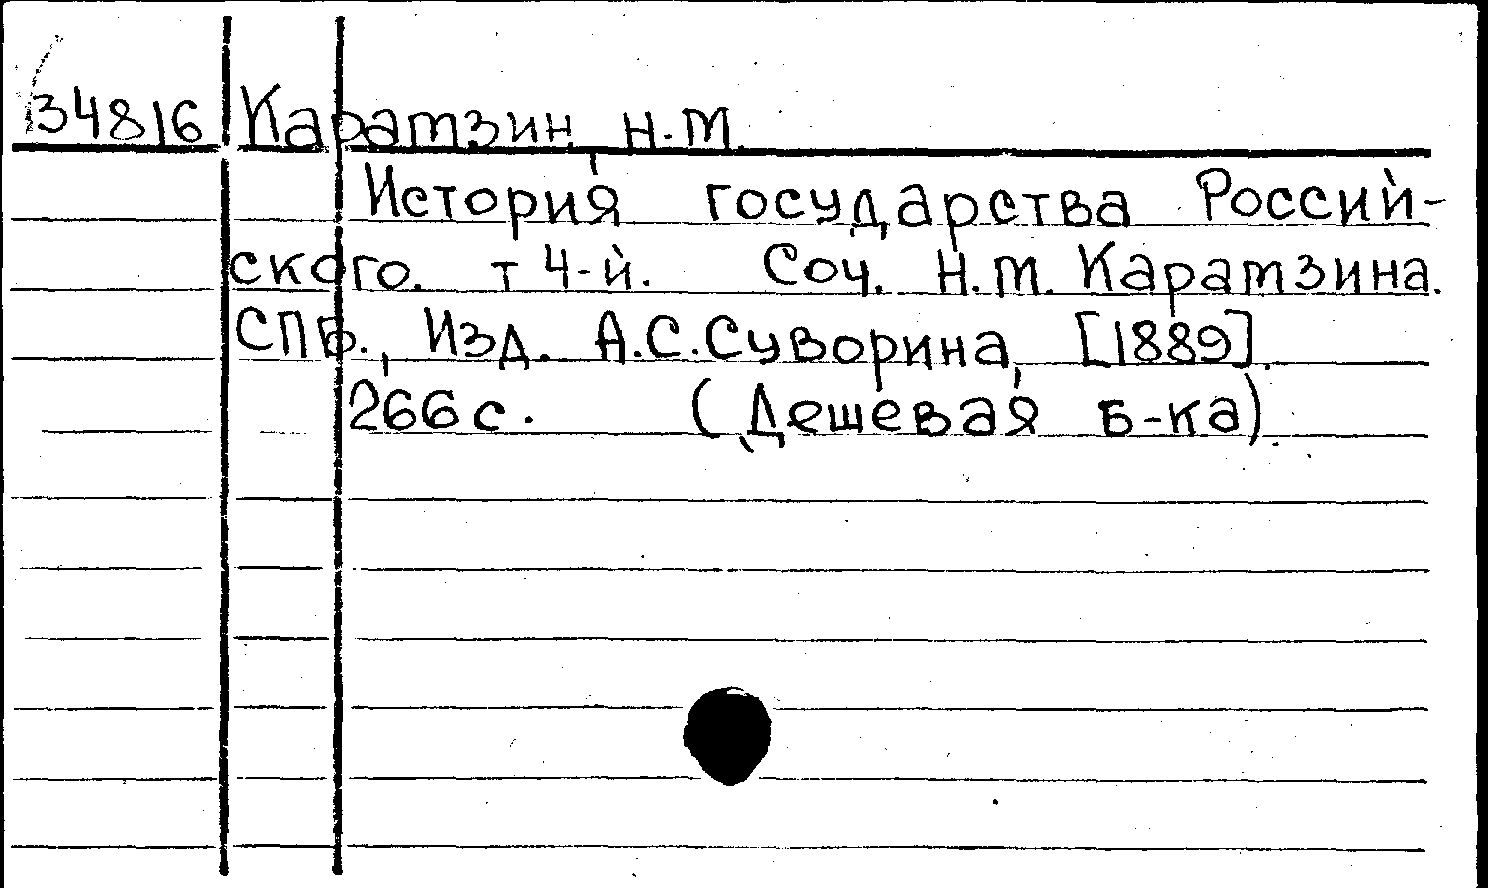 34816 Карамзин, Н.М.
История государства Россий-
ского. т 4-й. Соч. Н.М. Карамзина.
СПб., Изд. А.С.Суворина, [1889].
266с. (Дешевая б-ка).